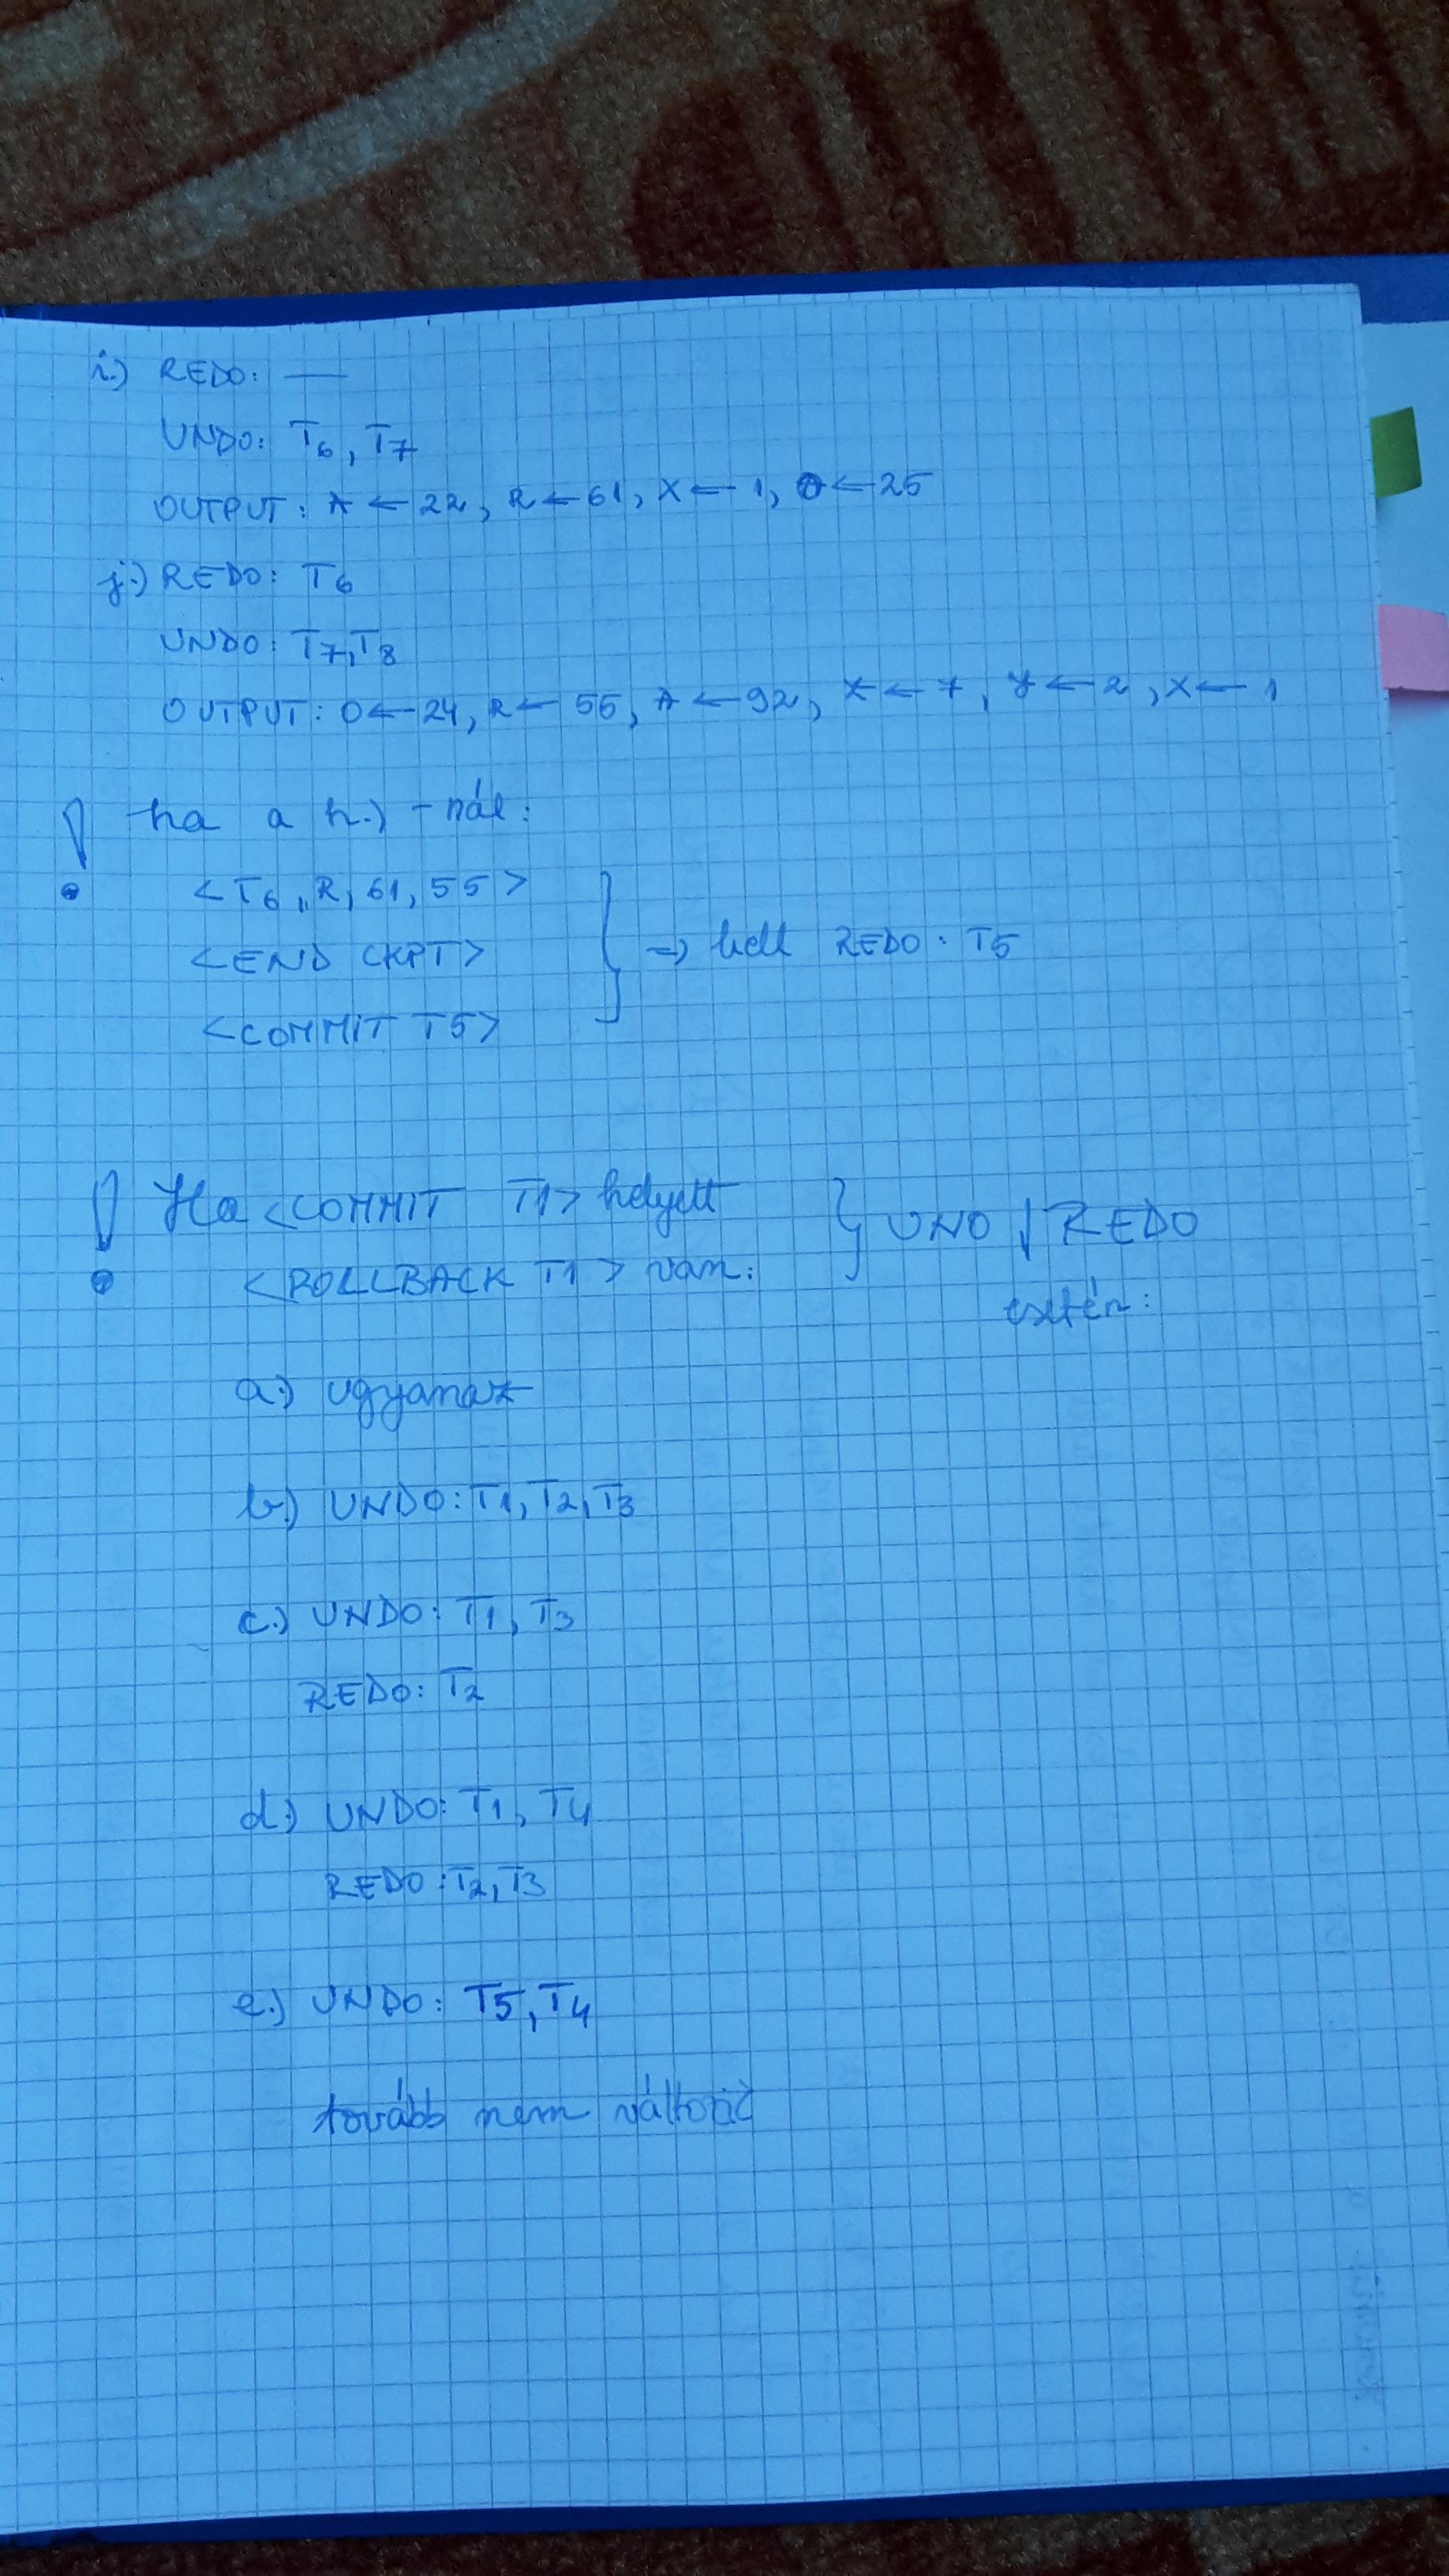 i.) REDO: —
UNDO: T6, T7
OUTPUT: A ← 22, R ← 61, X ← 1, O ← 25
j.) REDO: T6
UNDO: T7, T8
OUTPUT: O ← 24, R ← 55, A ← 92, Z ← 7, Y ← 2, X ← 1
! ha a h.) -nál:
<T6, R, 61, 55>
<END CKPT> } => kell REDO: T5
<COMMIT T5>
! Ha <COMMIT T1> helyett } UNO / REDO
<ROLLBACK T1> van: esetén:
a.) ugyanaz
b.) UNDO: T1, T2, T3
c.) UNDO: T1, T3
REDO: T2
d.) UNDO: T1, T4
REDO: T2, T3
e.) UNDO: T5, T4
tovább nem változik